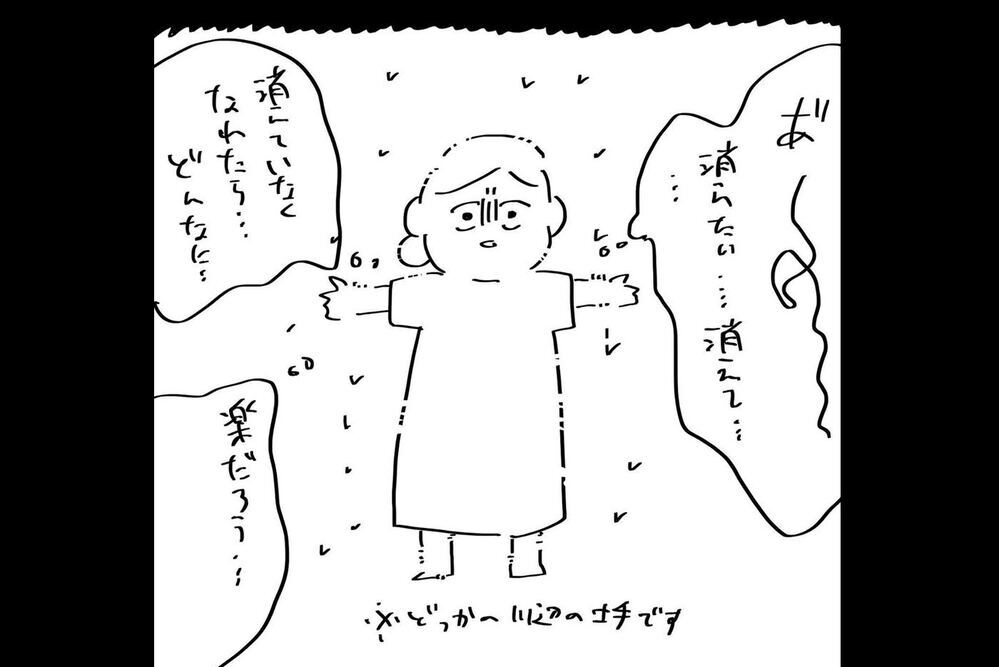 あ゛〜
消えたい…‥消えて…
…
消えていなく
なれたら…
どんなに…
楽だろう…
※どっかへ の です